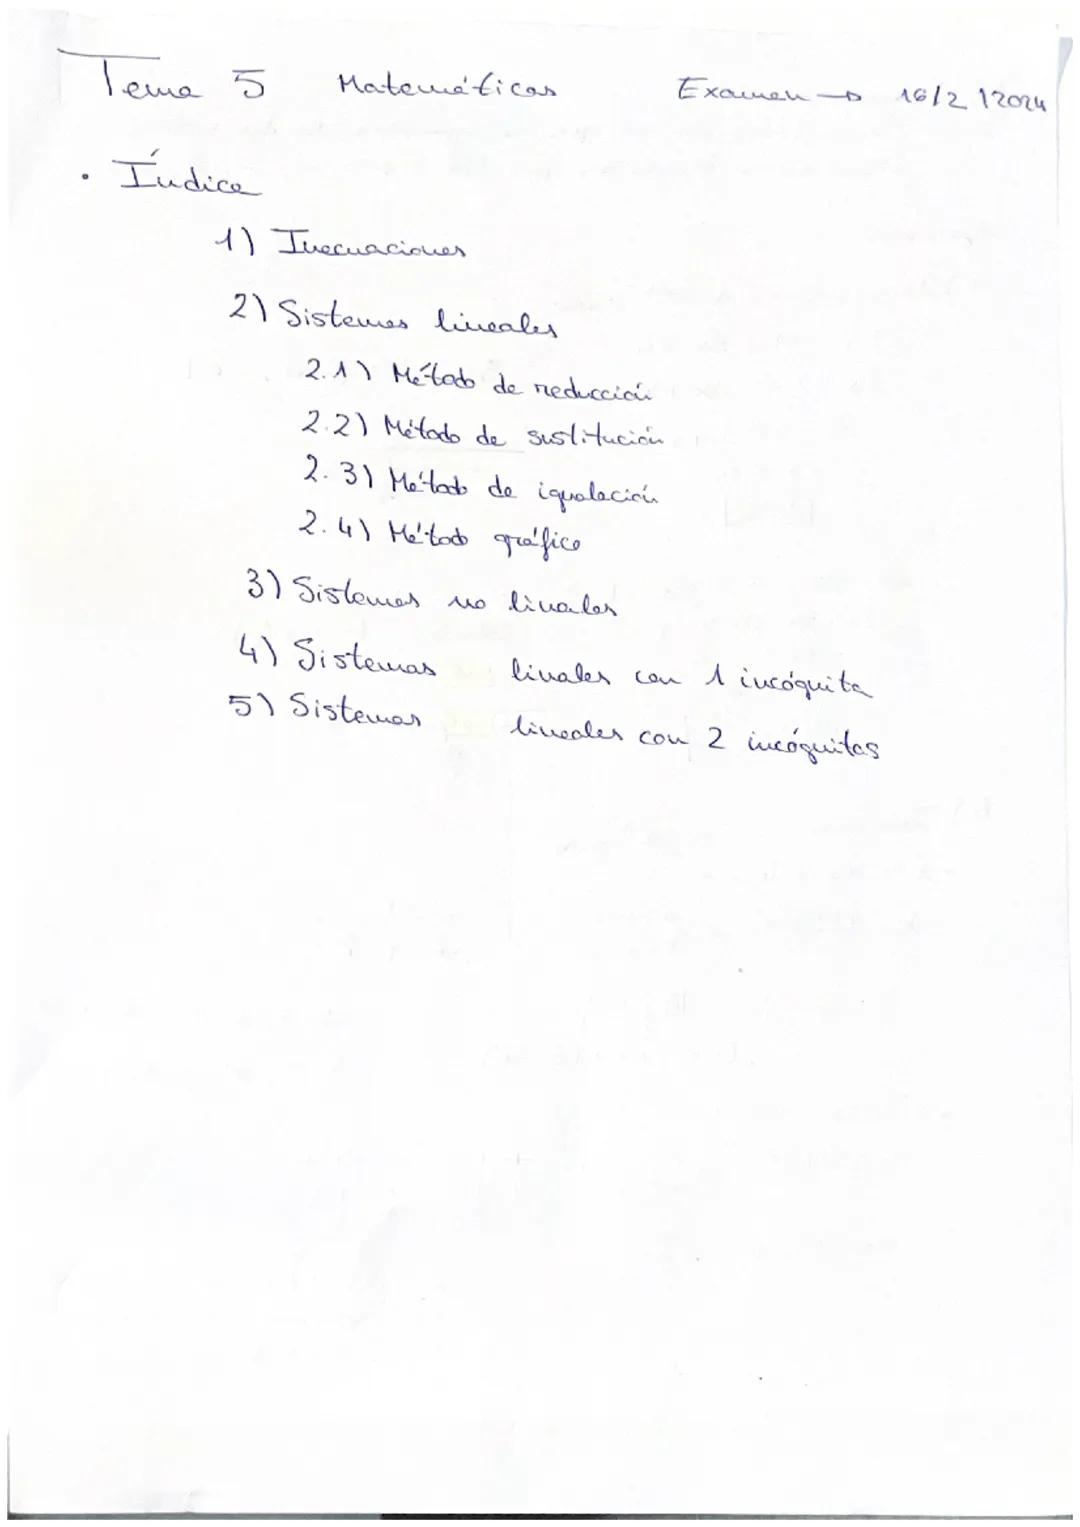 Tema 5 Matemáticas Examen → 16/2/2024
• Índice
1) Inecuaciones
2) Sistemas lineales
2.1) Método de reducción
2.2) Método de sustitución
2.3) Método de igualación
2.4) Método gráfico
3) Sistemas no linales
4) Sistemas linales con 1 incógnita
5) Sistemas lineales con 2 incógnitas